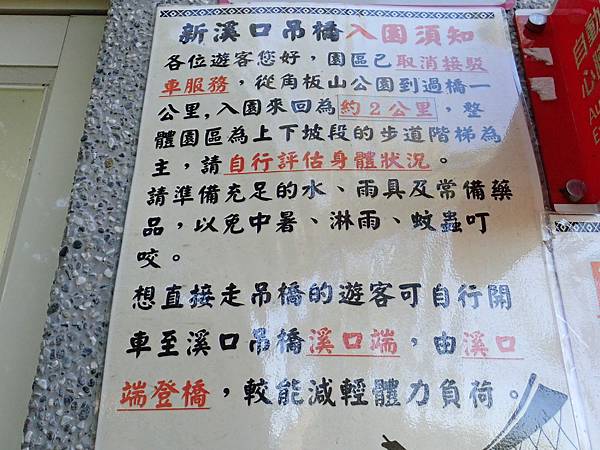 新溪口吊橋入園須知
各位遊客您好，園區已取消接駁
車服務，從角板山公園到過橋一
公里，入園來回為約2公里，整
體園區為上下坡段的步道階梯為
主，請自行評估身體狀況。
請準備充足的水、雨具及常備藥
品，以免中暑、淋雨、蚊蟲叮
咬。
想直接走吊橋的遊客可自行開
車至溪口吊橋溪口端，由溪口
端登橋，較能減輕體力負荷。
自動
心
Au